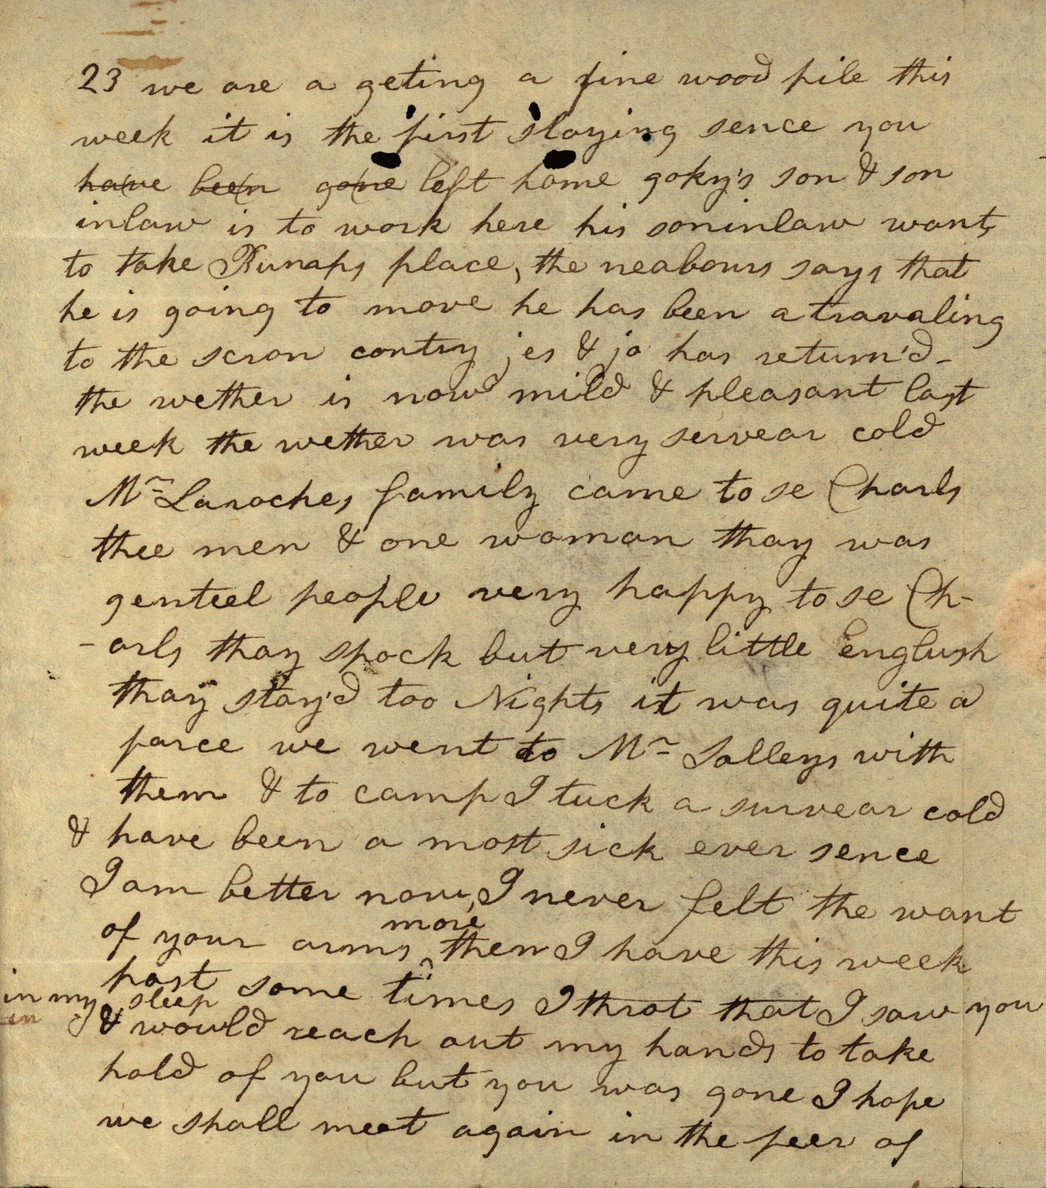 23 we are a geting a fine wood pile this
week it is the first slaying sence you
have been gone left home goky's son & son
inlaw is to work here his soninlaw wants
to take Runaps place, the neabours says that
he is going to move he has been a travaling
to the scron contry jes & jo has return'd -
the wether is now mild & pleasant last
week the wether was very servear cold
Mr Laroches family came to se Charls
thee men & one woman thay was
genteel people very happy to se Ch-
-arls thay spock but very little Englush
thay stay'd too Nights it was quite a
farce we went to Mr Salleys with
them & to camp I tuck a survear cold
& have been a most sick ever sence
I am better now, I never felt the want
of your arms more then I have this week
past some times I throt that I saw you
in my sleep
& would reach out my hands to take
hold of you but you was gone I hope
we shall meet again in the feer of